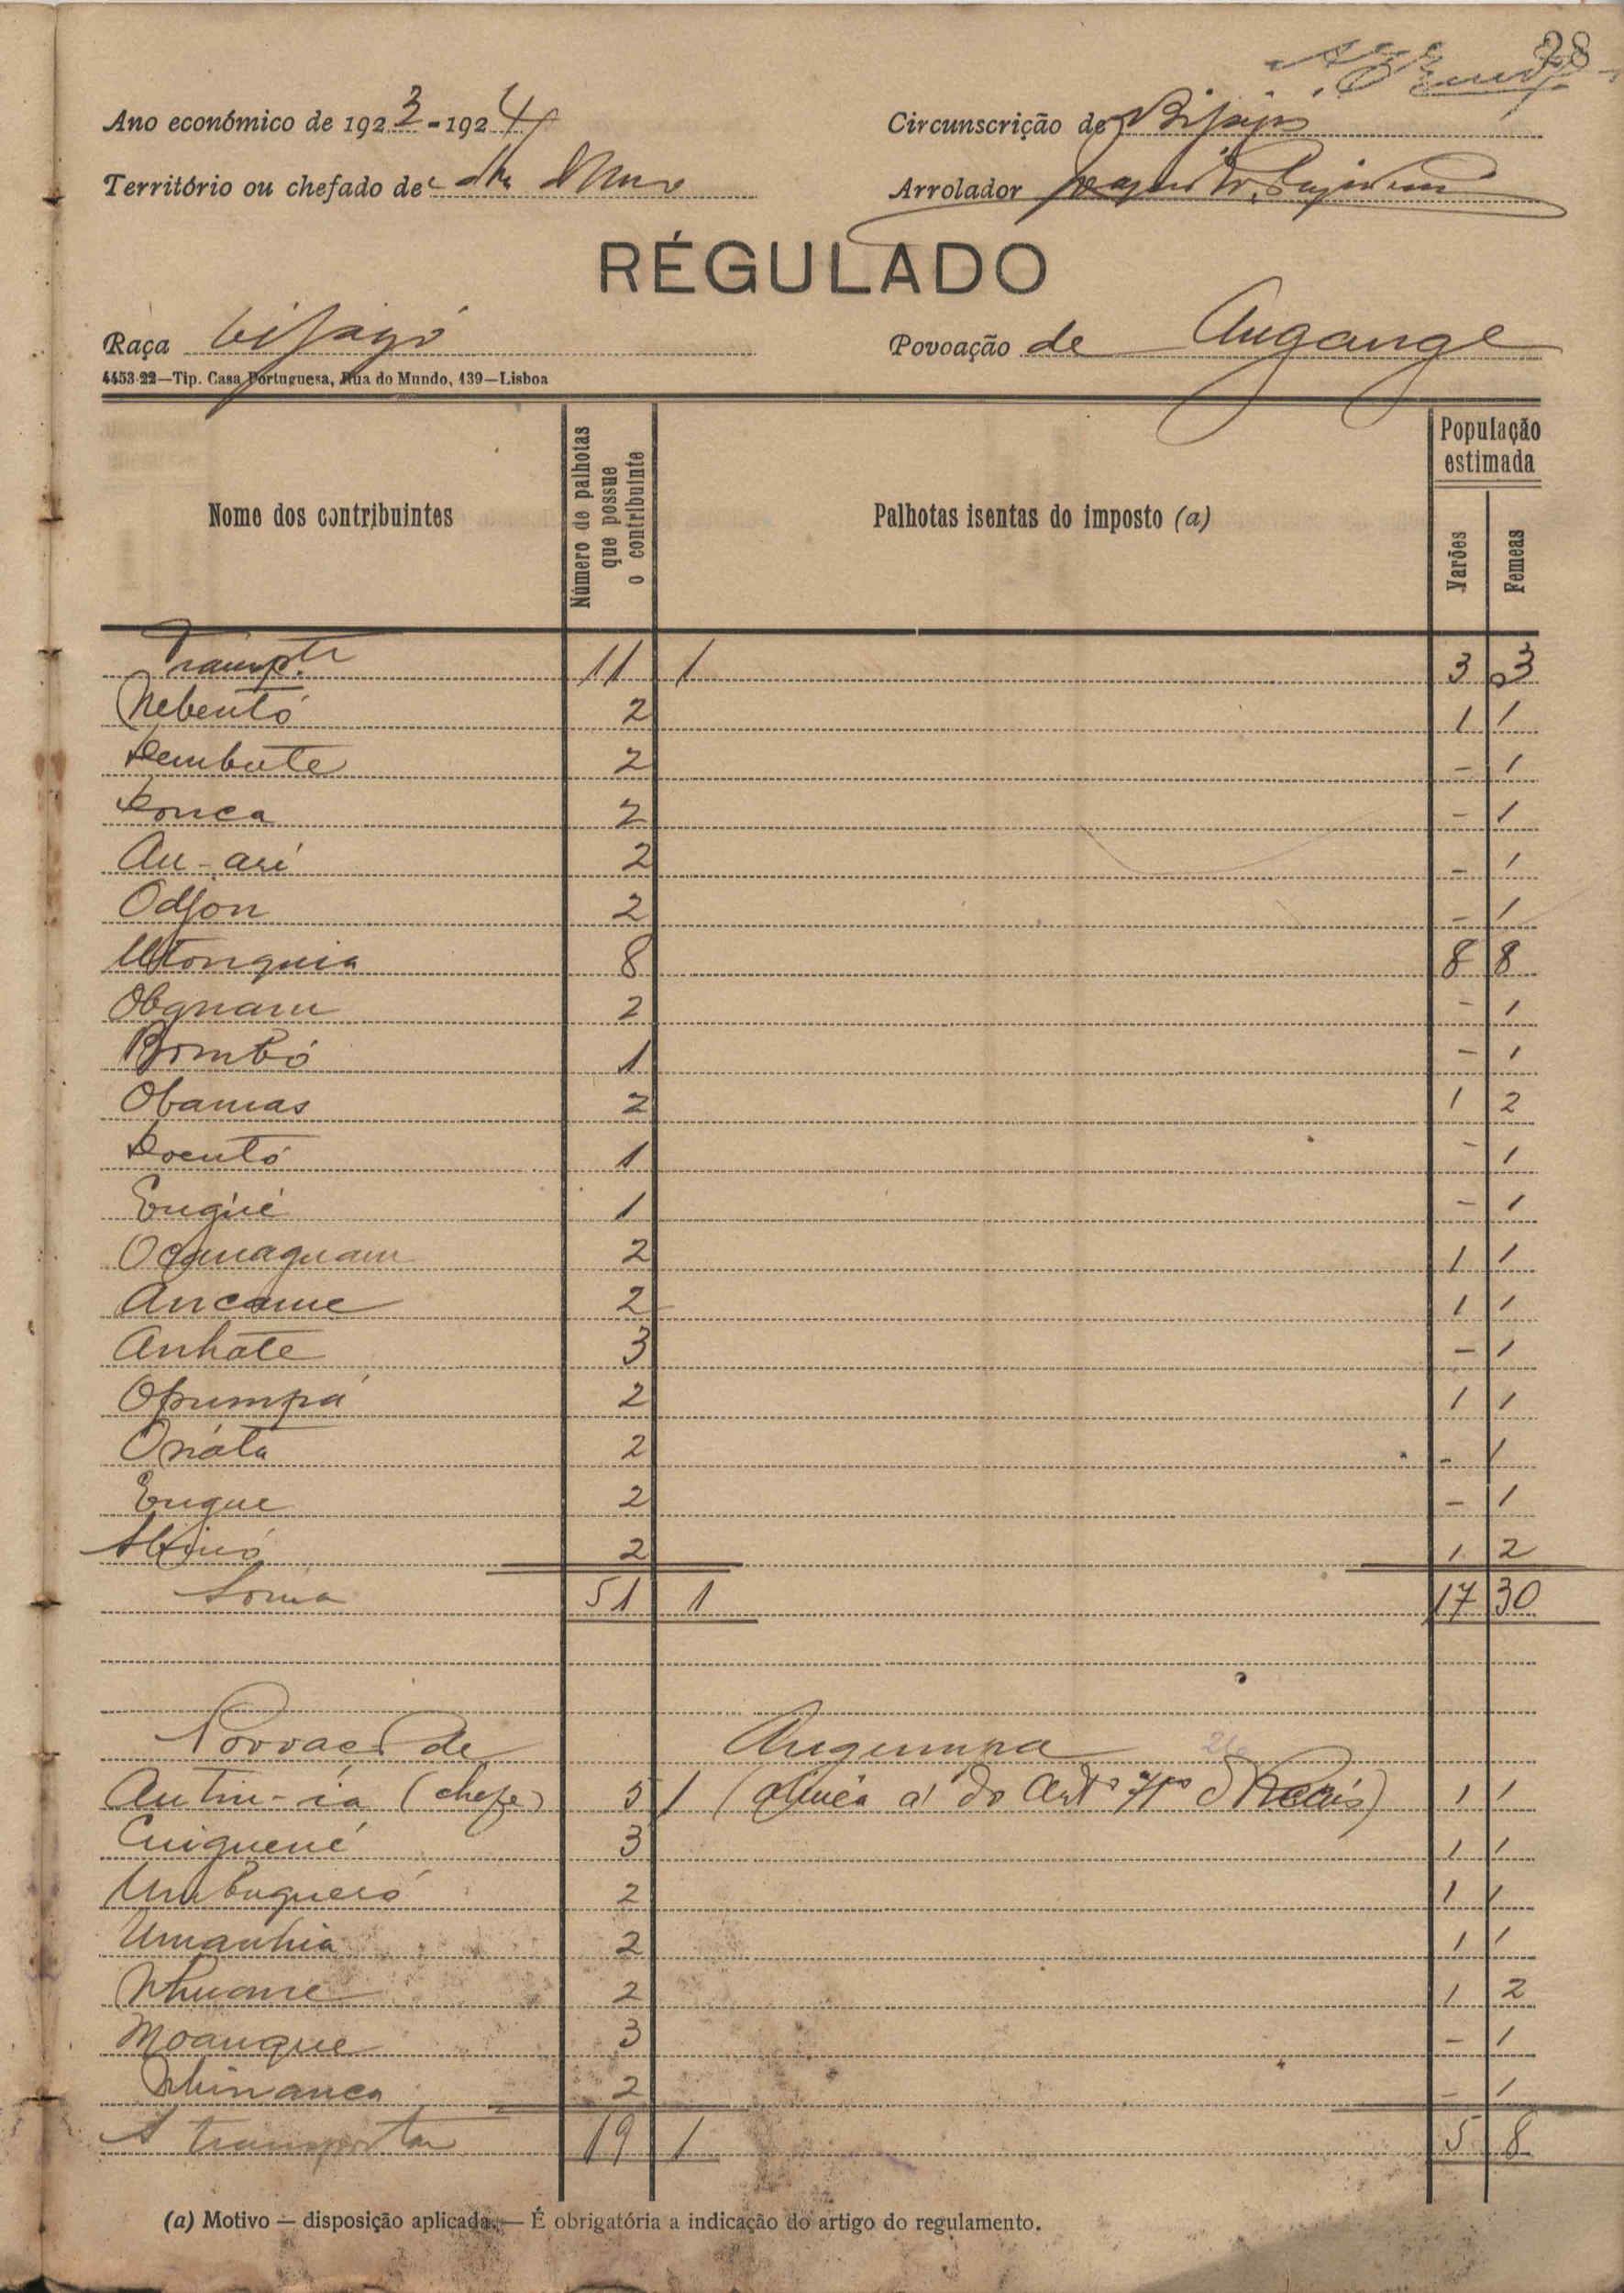 28
Ano económico de 1923-1924
Circunscrição de Bijagós
Território ou chefado de
Arrolador
RÉGULADO
Raça bijagó
Povoação de Angange
4453-22—Tip. Casa Portuguesa, Rua do Mundo, 139—Lisboa
Nome dos contribuintes
Número de palhotas que possue o contribuinte
Palhotas isentas do imposto (a)
População estimada
Varões
Femeas
Transpte 11 1 3 3
Nebentó 2 1 1
Dembute 2 - 1
Donca 2 - 1
An-ari 2 - 1
Odjon 2 - 1
Utonquia 8 8 8
Obgnam 2 - 1
Bombó 1 - 1
Obamas 2 1 2
Docutó 1 - 1
Engué 1 - 1
2 1 1
Ancame 2 1 1
Anhate 3 - 1
Opumpá 2 1 1
Onata 2 - 1
Enque 2 - 1
2 1 2
Soma 51 1 17 30
Povoação de Angumpa
Antin-iá (chefe) 5 1 (alinea a do Artº 7º do) 1 1
Cuiquené 3 1 1
Umbuqueró 2 1 1
Umanhia 2 1 1
Nhuane 2 1 2
Moanque 3 - 1
Nhinanca 2 - 1
A transportar 19 1 5 8
(a) Motivo — disposição aplicada. — É obrigatória a indicação do artigo do regulamento.